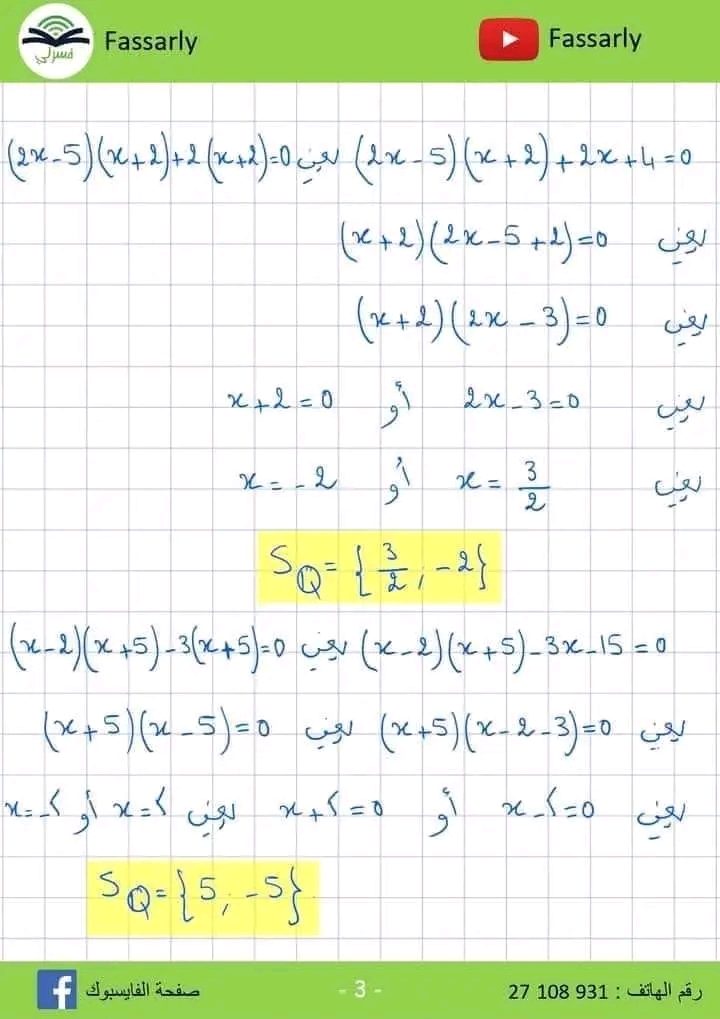 فسرلي
Fassarly
Fassarly
(2x-5)(x+2)+2x+4=0 يعني (2x-5)(x+2)+2(x+2)=0
يعني (x+2)(2x-5+2)=0
يعني (x+2)(2x-3)=0
يعني 2x-3=0 أو x+2=0
يعني x=3/2 أو x=-2
S_Q={3/2;-2}
(x-2)(x+5)-3x-15=0 يعني (x-2)(x+5)-3(x+5)=0
يعني (x+5)(x-2-3)=0 يعني (x+5)(x-5)=0
يعني x-5=0 أو x+5=0 يعني x=5 أو x=-5
S_Q={5;-5}
رقم الهاتف : 27 108 931
- 3 -
صفحة الفايسبوك